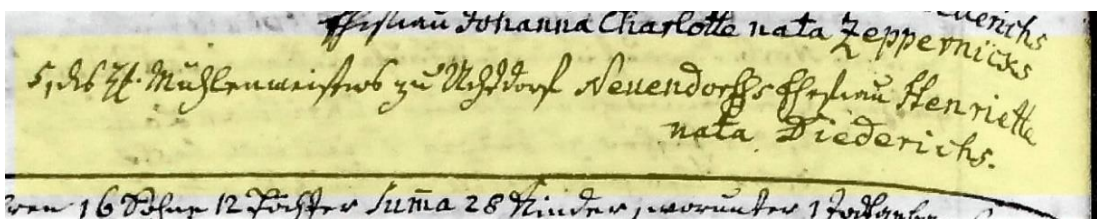 Ehefrau Johanna Charlotte nata Zeppernicks
5, des H. Mühlenmeisters zu Uchtdorf Neuendorffs Ehefrau Henriette
nata Diederichs.
16 Söhne 12 Töchter Suma 28 Kinder, worunter 1